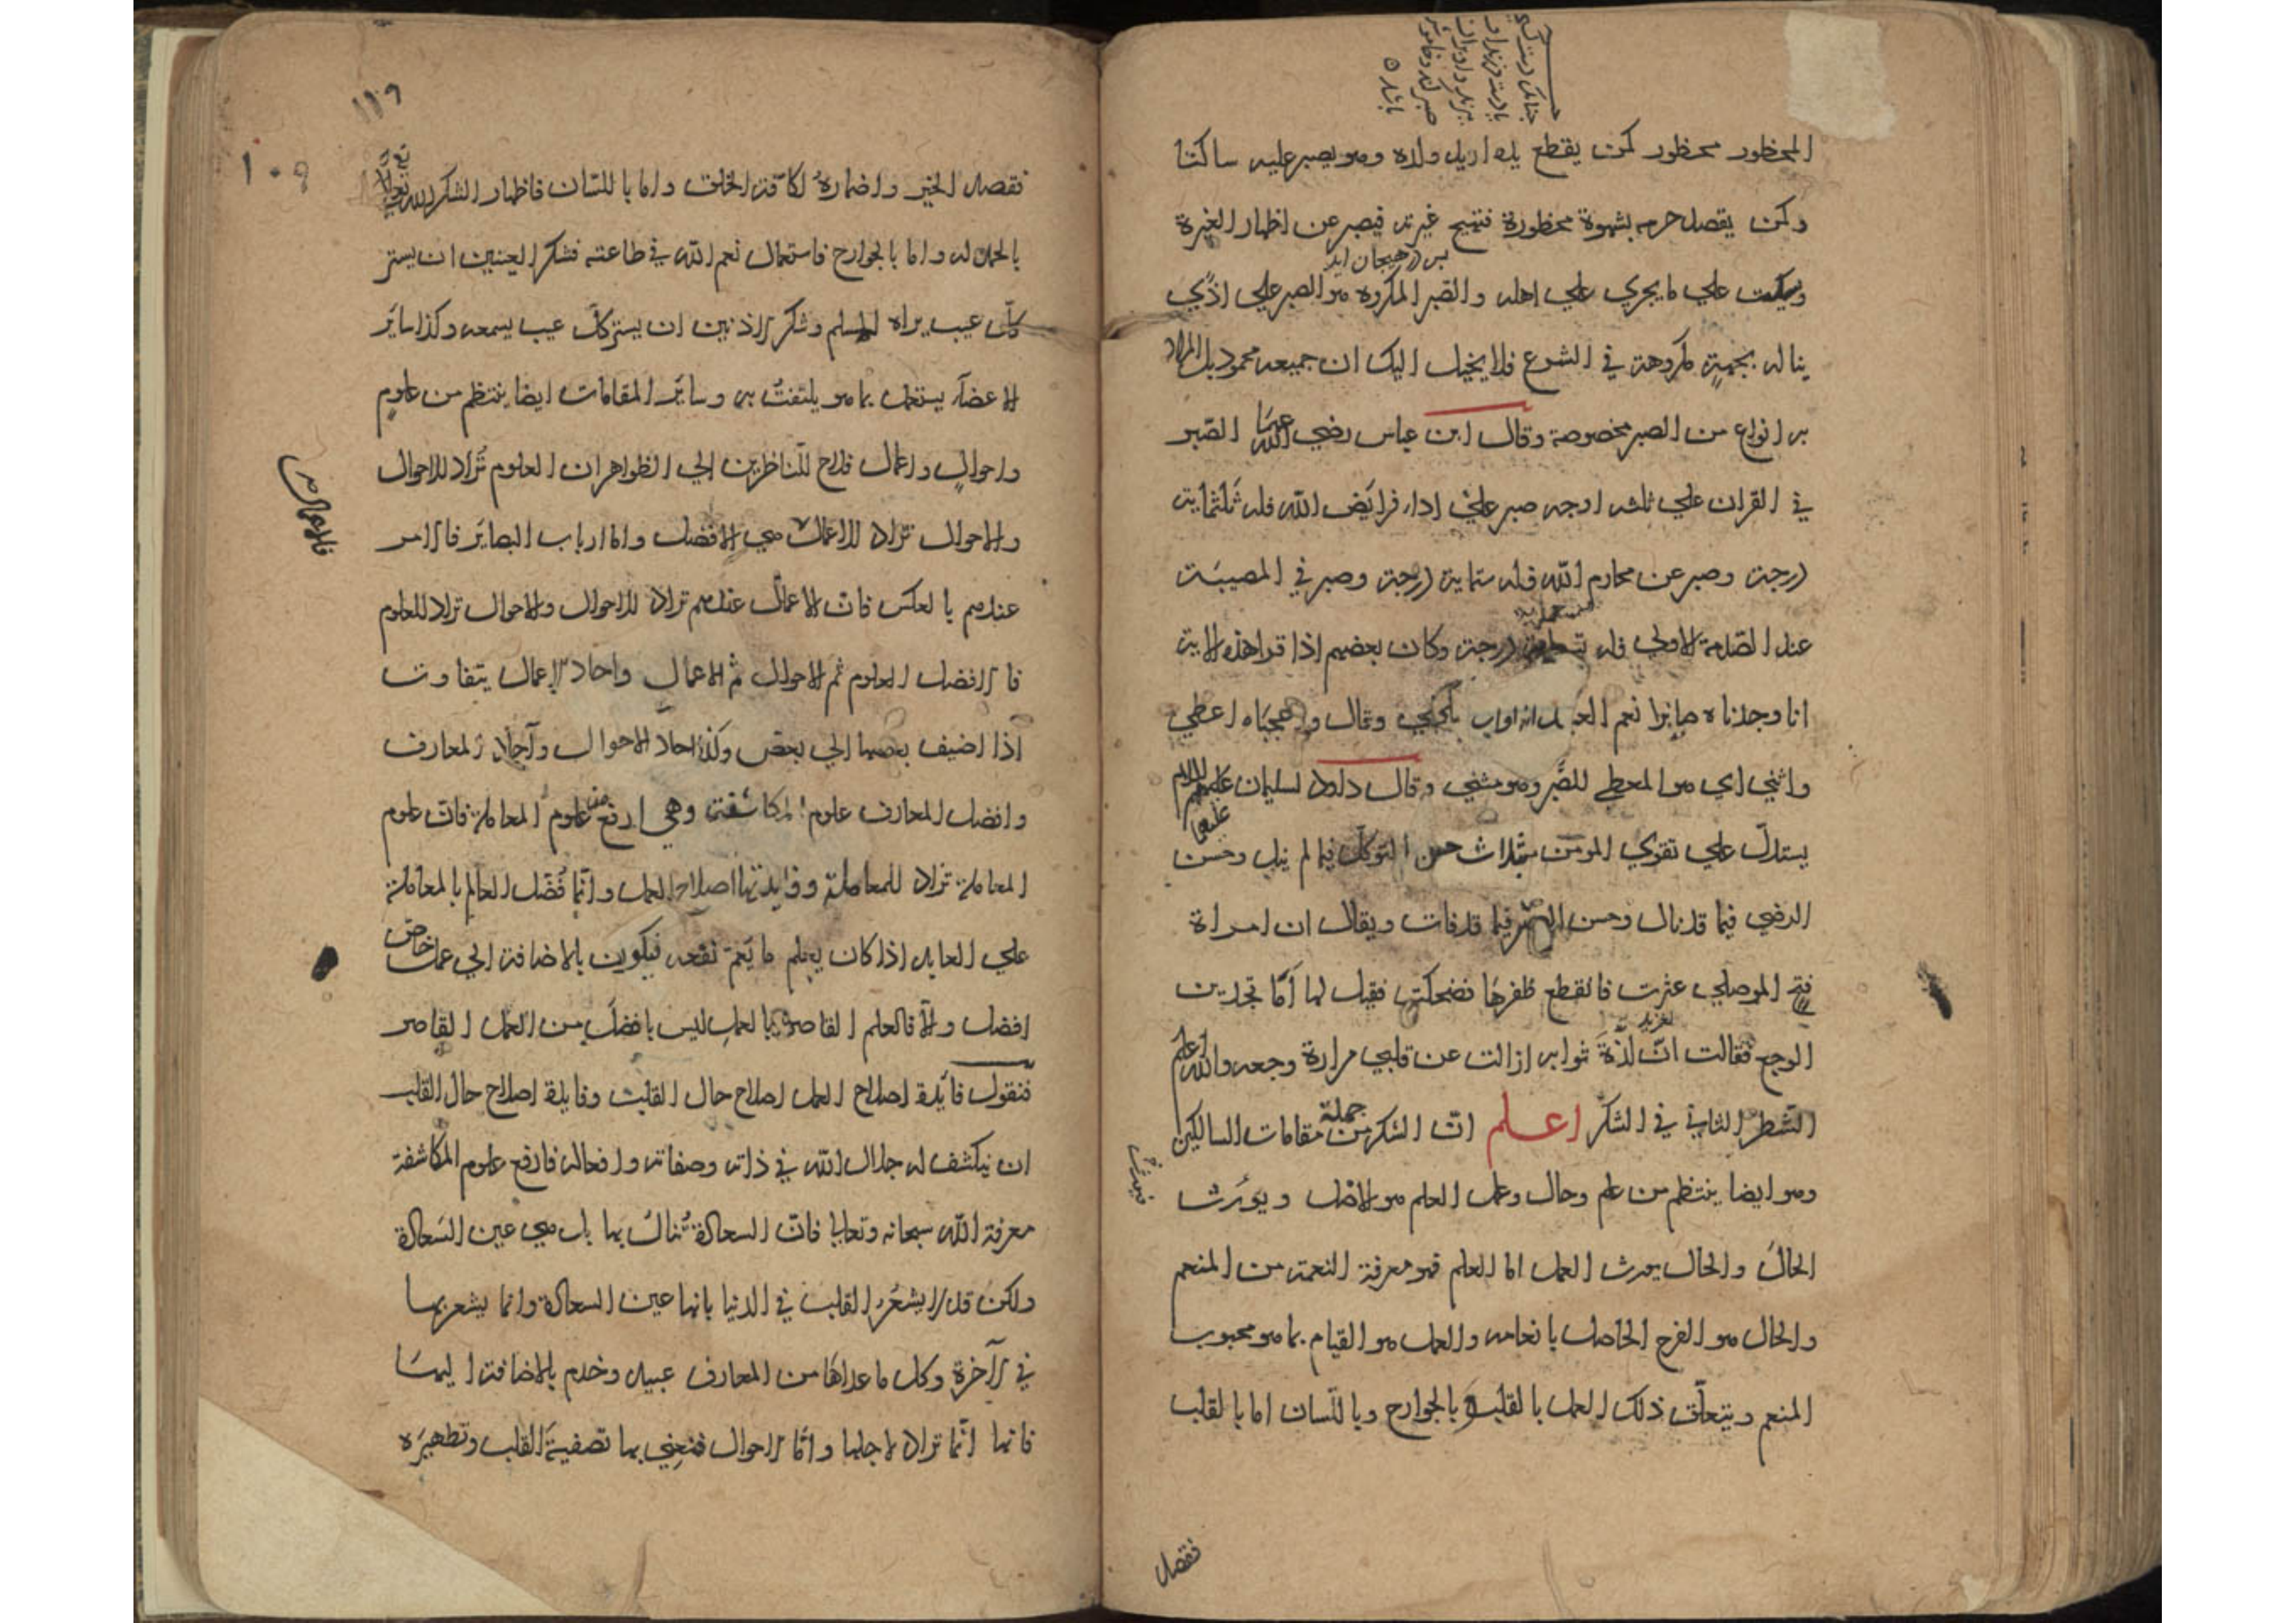 المحظور محظور كمن يقطع يده او يد ولده وهو يصبر عليه ساكتا
وكمن يقصد حرمه بشهوة محظورة فتهيج غيرته فيصبر عن اظهار الغيرة
ويسكت علي ما يجري علي اهله والصبر المكروه هو الصبر علي اذي
يناله بجهة مكروهة في الشرع فلا يخيل اليك ان جميعه محمود بل المراد
به انواع من الصبر مخصوصة وقال ابن عباس رضي الله عنهما الصبر
في القران علي ثلثه اوجه صبر علي اداء فرايض الله فله ثلثماية
درجة وصبر عن محارم الله فله ستماية درجة وصبر في المصيبة
عند الصدمة الاولي فله تسعماية درجة وكان بعضهم اذا قرا هذه الاية
انا وجدناه صابرا نعم العبد انه اواب بكي وقال واعجباه اعطي
واثني اي هو المعطي للصبر وهو مثني وقال داود لسليمان عليهم السلام
عليهما
يستدل علي تقوي المومن بثلاث حسن التوكل فيما لم ينل وحسن
الرضي فيما قد نال وحسن الصبر فيما قد فات ويقال ان امراة
فتح الموصلي عثرت فانقطع ظفرها فضحكت فقيل لها اما تجدين
الوجع فقالت ان لذة ثوابه ازالت عن قلبي مرارة وجعه والله اعلم
الشطر الثاني في الشكر اعلم ان الشكر من جملة مقامات السالكين
وهو ايضا ينتظم من علم وحال وعمل العلم هو الاصل ويورث
الحال والحال يورث العمل اما العلم فهو معرفة النعمة من المنعم
والحال هو الفرح الحاصل بانعامه والعمل هو القيام بما هو محبوب
المنعم ويتعلق ذلك العمل بالقلب وبالجوارح وباللسان اما بالقلب
فقصد
١١٩
١٠٩
فقصد الخير واضماره لكافة الخلق واما باللسان فاظهار الشكر لله تعالي
بالحمد له واما بالجوارح فاستعمال نعم الله في طاعته فشكر العينين ان يستر
كل عيب يراه لمسلم وشكر الاذنين ان يستر كل عيب يسمعه وكذا ساير
الاعضاء يستعمل بما هو يلتفت به وساير المقامات ايضا ينتظم من علوم
واحوال واعمال فلاح للناظرين الي الظواهر ان العلوم تراد للاحوال
والاحوال تراد للاعمال هي الافضل واما ارباب البصاير فالامر
عندهم بالعكس فان الاعمال عندهم تراد للاحوال والاحوال تراد للعلوم
فالافضل العلوم ثم الاحوال ثم الاعمال واحاد الاعمال يتفاوت
اذا اضيف بعضها الي بعض وكذا احاد الاحوال وآحاد المعارف
وافضل المعارف علوم المكاشفة وهي ارفع من علوم المعاملة فان علوم
المعاملة تراد للمعاملة وفايدتها اصلاح العمل وانما فضل العالم بالمعاملة
علي العابد اذا كان يعلم ما يعم نفعه فيكون بالاضافة الي عمل خاص
افضل والا فالعلم القاصر بالعمل ليس بافضل من العمل القاصر
فنقول فايدة اصلاح العمل اصلاح حال القلب وفايدة اصلاح حال القلب
ان ينكشف له جلال الله في ذاته وصفاته وافعاله فارفع علوم المكاشفة
معرفة الله سبحانه وتعالي فان السعادة تنال بها بل هي عين السعادة
ولكن قد لا يشعر القلب في الدنيا بانها عين السعادة وانما يشعر بها
في الآخرة وكل ما عداها من المعارف عبيد وخدم بالاضافة اليها
فانها انما تراد لاجلها واما الاحوال فنعني بها تصفية القلب وتطهيره